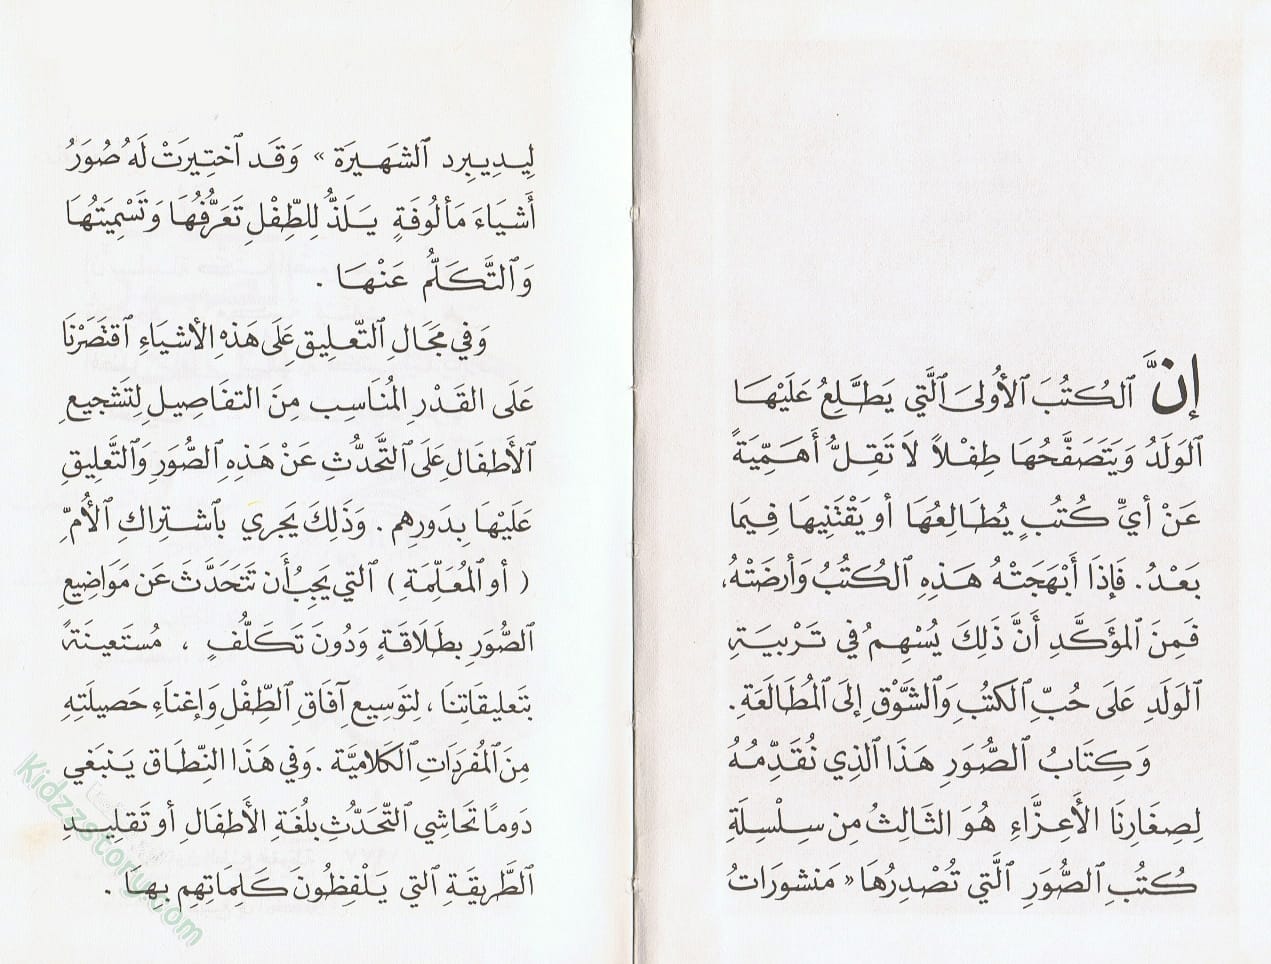 إنَّ ٱلكُتُبَ ٱلأُولىَ ٱلَّتِي يَطَّلِعُ عَلَيْهَا
ٱلوَلَدُ وَيَتَصَفَّحُهَا طِفْلاً لَا تَقِلُّ أَهَمِّيَةً
عَنْ أيِّ كُتُبٍ يُطَالِعُهَا أو يَقْتَنِيهَا فِيمَا
بَعْدُ. فَإِذَا أَبْهَجَتْهُ هَذِهِ ٱلكُتُبُ وَأرضَتْهُ،
فَمِنَ ٱلمؤَكَّدِ أَنَّ ذَلِكَ يُسْهِمُ في تَرْبِيَةِ
ٱلوَلَدِ عَلَى حُبِّ ٱلكتُبِ وَٱلشَّوْقِ إلىَ ٱلمُطَالَعَةِ.
وَكِتَابُ ٱلصُّوَرِ هَذَا ٱلذِي نُقَدِّمُهُ
لِصِغَارِنَا ٱلأَعِزَّاءِ هُوَ ٱلثالِثُ مِن سِلْسِلَةِ
كُتُبِ ٱلصُّوَرِ ٱلَّتِي تُصْدِرُهَا « مَنشورَاتُ
لِيدِيبِرد ٱلشَهِيرَة » وَقَد ٱختِيرَتْ لَهُ صُوَرُ
أَشيَاءَ مَألُوفَةٍ يَلَذُّ لِلطِّفْلِ تَعَرُّفُهَا وَتَسْمِيَتُهَا
وَٱلتَّكَلُّم عَنْهَا .
وَفي مَجَالِ ٱلتَّعلِيقِ عَلَى هَذِهِ ٱلأشيَاءِ ٱقتَصَرْنَا
عَلَى القَدْرِ ٱلمُنَاسِب مِنَ ٱلتفَاصِيلِ لِتَشجِيعِ
ٱلأَطفَالِ عَلَى ٱلتَّحَدُّثِ عَنْ هَذِهِ ٱلصُّوَرِ وَٱلتَّعلِيقِ
عَلَيْهَا بِدَورِهِم . وَذَلِكَ يَجري بٱشتِرَاكِ ٱلأُمِّ
( أو ٱلمُعَلِّمَةِ ) ٱلتي يَجِبُ أَن تَتَحَدَّثَ عَن مَوَاضِيعِ
ٱلصُّوَرِ بِطَلَاقَةٍ وَدُونَ تَكَلُّفٍ ، مُستَعِينَةً
بتَعلِيقَاتِنَا ، لِتَوسِيعِ آفَاقِ ٱلطِّفْلِ وَإغنَاءِ حَصِيلَتِهِ
مِنَ ٱلمُفرَدَاتِ ٱلكَلامِيَّة . وَفي هَذَا ٱلنِّطَاق يَنبَغي
دَومًا تَحَاشِي ٱلتَّحَدُّثِ بِلُغَةِ ٱلأَطفَالِ أو تَقلِيدِ
ٱلطَّرِيقَةِ ٱلتي يَلْفِظُونَ كَلِمَاتِهِم بِهَا .
Kidzzstory.com